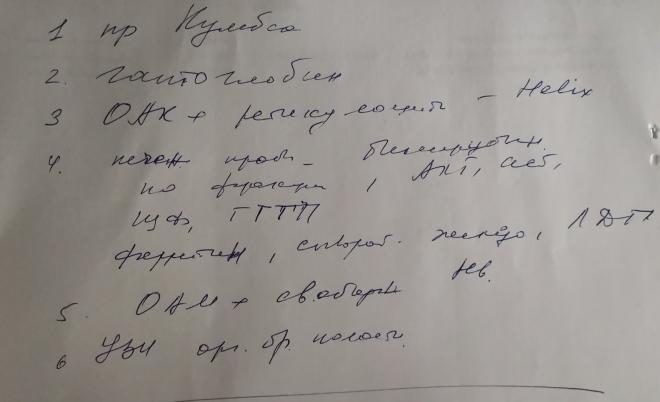 1 пр Кумбса
2. гаптоглобин
3 ОАК + ретикулоциты – Helix
4. печен. проб – билирубин
по фракции, АЛТ, АСТ,
ЩФ, ГГТП
ферритин, сыворот. железо, ЛДГ
5. ОАМ + свободн Hb.
6 УЗИ орг. бр. полости.